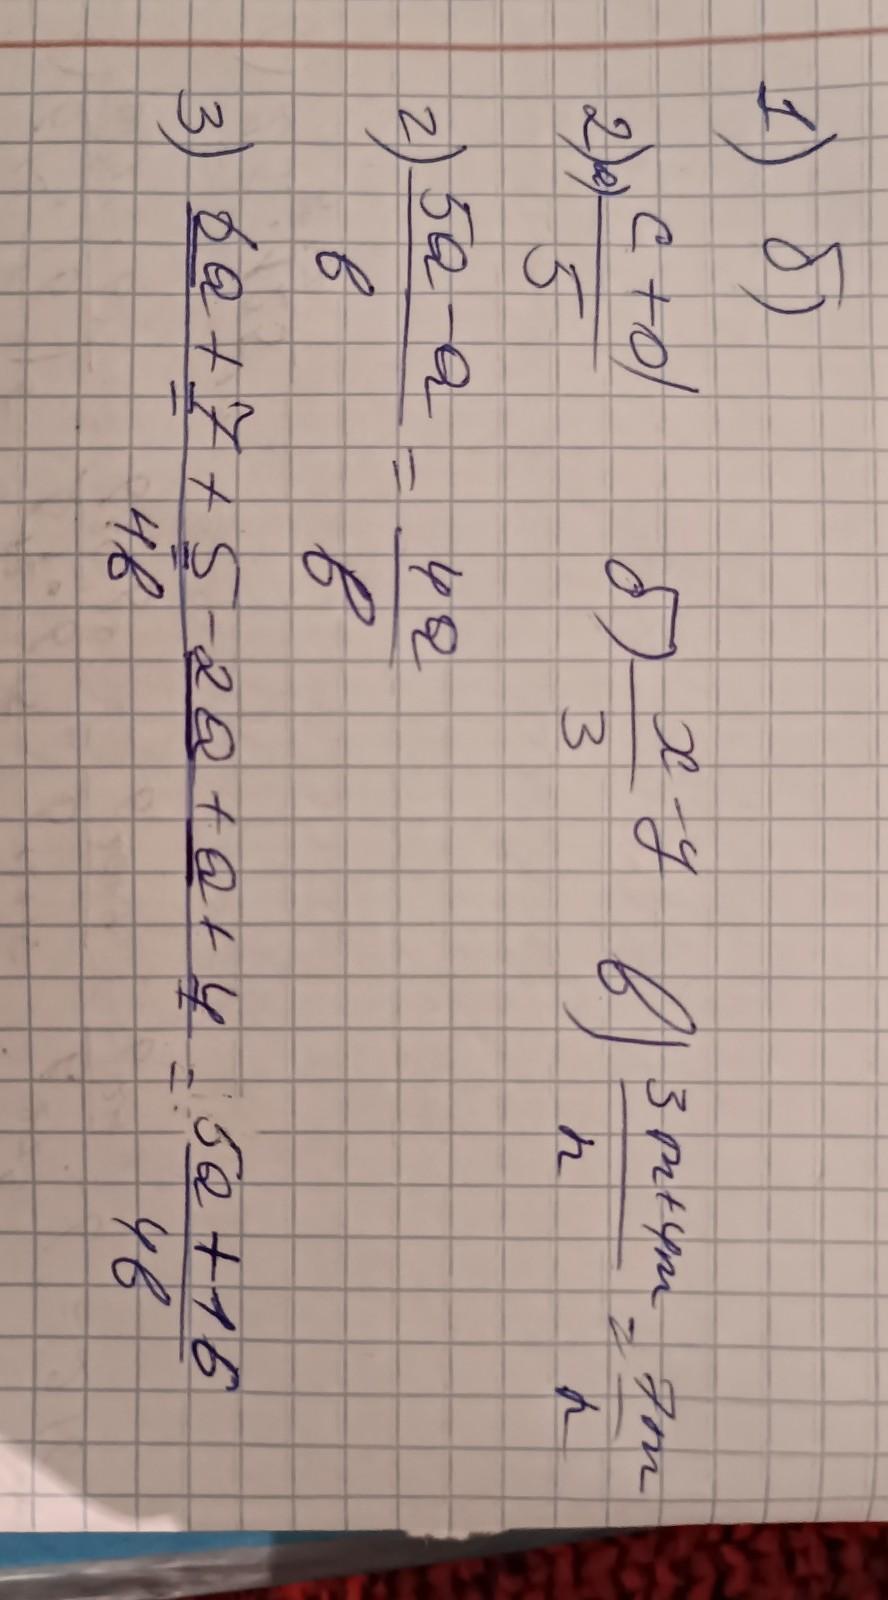 1) б)
2) а) (c+d)/5 б) (x-y)/3 в) (3m+4m)/n = 7m/n
г) (5a-a)/b = 4a/b
3) (6a+7+5-2a+a+4)/4b = (5a+16)/4b